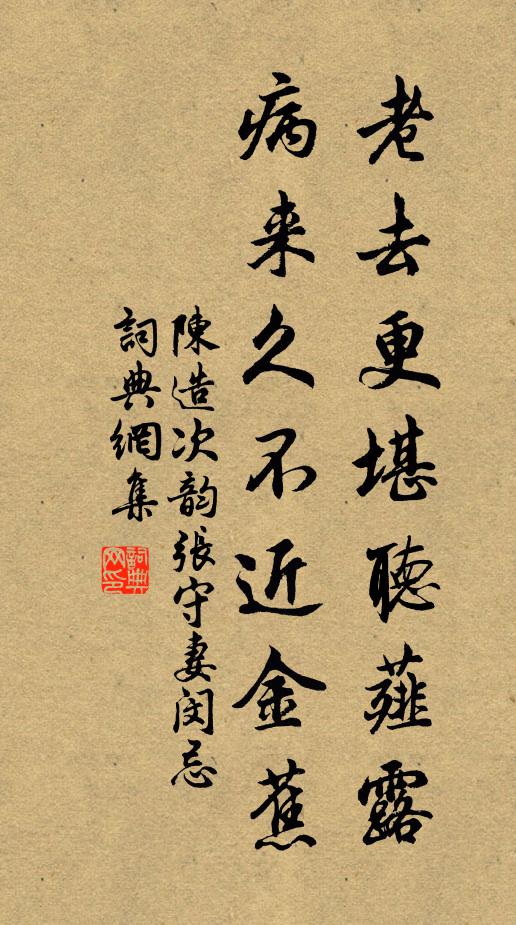 老去更堪聽薤露
病来久不近金蕉
陳造次韵張守妻閔忌
詞典網集
詞典網印